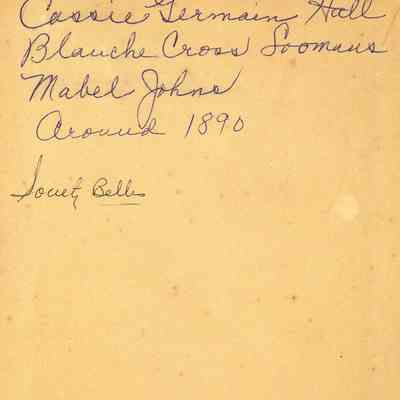 Cassie Germain Hall
Blanche Cross Soomans
Mabel Johns
Around 1890
Souety Belles